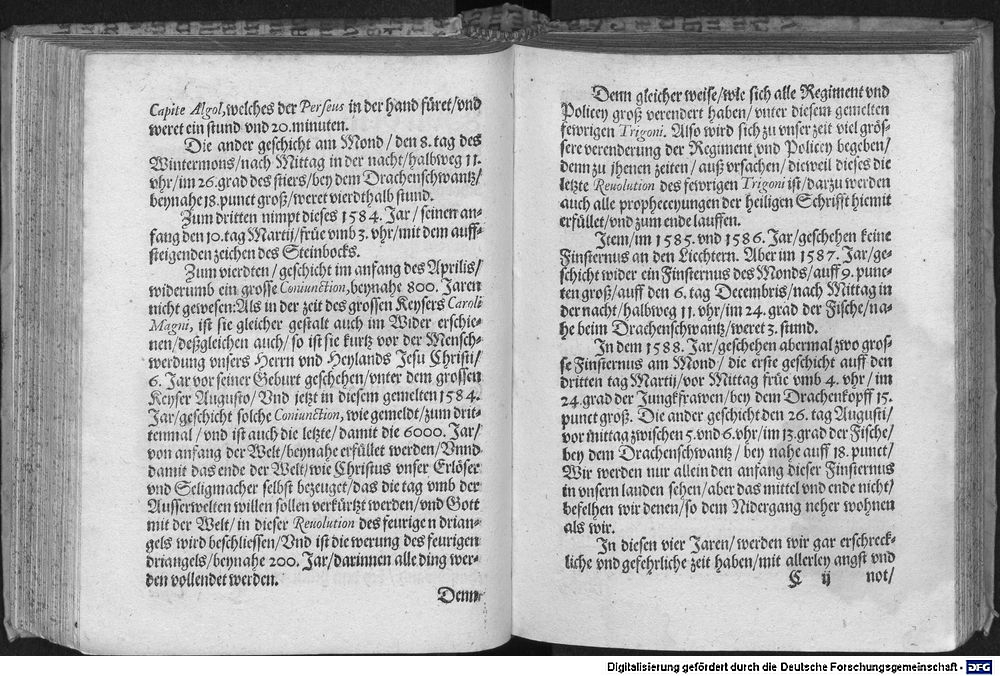 Capite Algol, welches der Perseus in der hand füret/vnd
weret ein stund vnd 20. minuten.
Die ander geschicht am Mond/ den 8. tag des
Wintermons/nach Mittag in der nacht/halbweg 11.
vhr/im 26. grad des stiers/bey dem Drachenschwantz/
beynahe 18. punct groß/weret vierdthalb stund.
Zum dritten nimpt dieses 1584. Jar/ seinen an-
fang den 10. tag Martij/früe vmb 3. vhr/mit dem auff-
steigenden zeichen des Steinbocks.
Zum vierdten/geschicht im anfang des Aprilis/
widerumb ein grosse Coniunction, beynahe 800. Jaren
nicht gewesen: Als in der zeit des grossen Keysers Caroli
Magni, ist sie gleicher gestalt auch im Wider erschie-
nen/deßgleichen auch/ so ist sie kurtz vor der Mensch-
werdung vnsers Herrn vnd Heylands Jesu Christi/
6. Jar vor seiner Geburt geschehen/vnter dem grossen
Keyser Augusto/ Vnd jetzt in diesem gemelten 1584.
Jar/geschicht solche Coniunction, wie gemeldt/zum drit-
tenmal/ vnd ist auch die letzte/damit die 6000. Jar/
von anfang der Welt/beynahe erfüllet werden/ Vnnd
damit das ende der Welt/wie Christus vnser Erlöser
vnd Seligmacher selbst bezeuget/das die tag vmb der
Ausserwelten willen sollen verkürtzt werden/vnd Gott
mit der Welt/ in dieser Reuolution des feurigen drian-
gels wird beschliessen/ Vnd ist die werung des feurigen
driangels/beynahe 200. Jar/darinnen alle ding wer-
den vollendet werden.
Denn
Denn gleicher weise/wie sich alle Regiment vnd
Policey groß verendert haben/ vnter diesem gemelten
fewrigen Trigoni. Also wird sich zu vnser zeit viel grös-
sere verenderung der Regiment vnd Policey begeben/
denn zu jhenen zeiten/ auß vrsachen/ dieweil dieses die
letzte Reuolution des fewrigen Trigoni ist/darzu werden
auch alle propheceyungen der heiligen Schrifft hiemit
erfüllet/vnd zum ende lauffen.
Item/im 1585. vnd 1586. Jar/geschehen keine
Finsternus an den Liechtern. Aber im 1587. Jar/ge-
schicht wider ein Finsternus des Monds/auff 9. punc-
ten groß/auff den 6. tag Decembris/nach Mittag in
der nacht/halbweg 11. vhr/im 24. grad der Fische/na-
he beim Drachenschwantz/weret 3. stund.
In dem 1588. Jar/geschehen abermal zwo gros-
se Finsternus am Mond/ die erste geschicht auff den
dritten tag Martij/vor Mittag früe vmb 4. vhr/ im
24. grad der Jungkfrawen/bey dem Drachenkopff 15.
punct groß. Die ander geschicht den 26. tag Augusti/
vor mittag zwischen 5. vnd 6. vhr/im 13. grad der Fische/
bey dem Drachenschwantz/ bey nahe auff 18. punct/
Wir werden nur allein den anfang dieser Finsternus
in vnsern landen sehen/aber das mittel vnd ende nicht/
befelhen wir denen/so dem Nidergang neher wohnen
als wir.
In diesen vier Jaren/ werden wir gar erschreck-
liche vnd gefehrliche zeit haben/mit allerley angst vnd
C ij not/
Digitalisierung gefördert durch die Deutsche Forschungsgemeinschaft - DFG